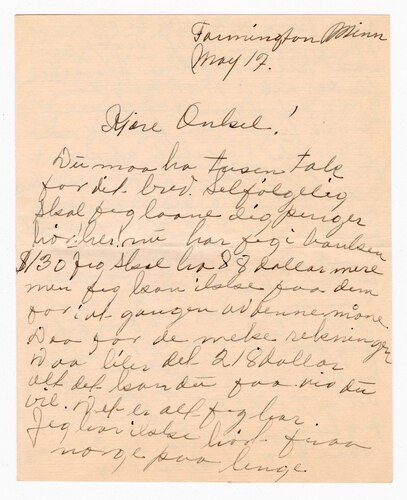 Farmington Minn
May 17.
Kjære Onkel!
Du maa ha tusen tak
for det bred. Selfölgelig
skal jeg laane dig penger
hör her! nu har jeg i banken
$130 Jeg skal ha 88 dollar mere
men jeg kan ikke faa dem
for i ut gangen av denne måne
Daa for de melke rekninger
Daa blir det 218 dollar
alt det kan du faa vis du
vil. Det er alt jeg har.
Jeg har ikke hört fraa
norge paa lenge